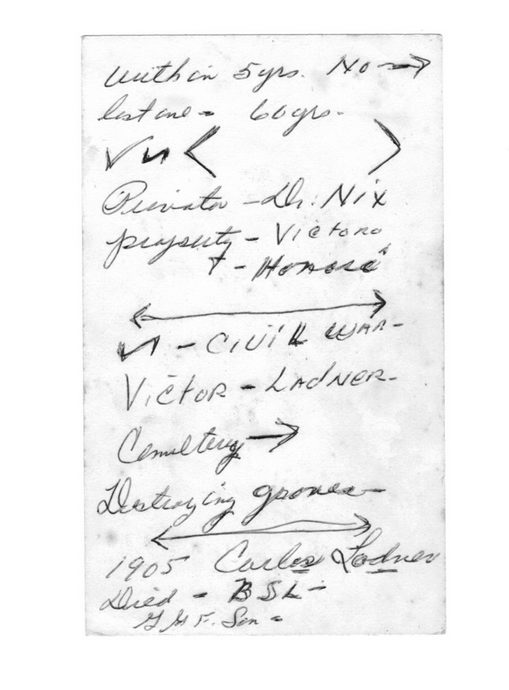 within 5 yrs. No →
last one = 60 yrs -
Private - Dr. Nix
property - Victoro
+ - Honoré
- CIVIL WAR -
Victor - Ladner -
Cemetery →
Destroying graves -
1905 Carlos Ladner
Died - BSL -
Son =